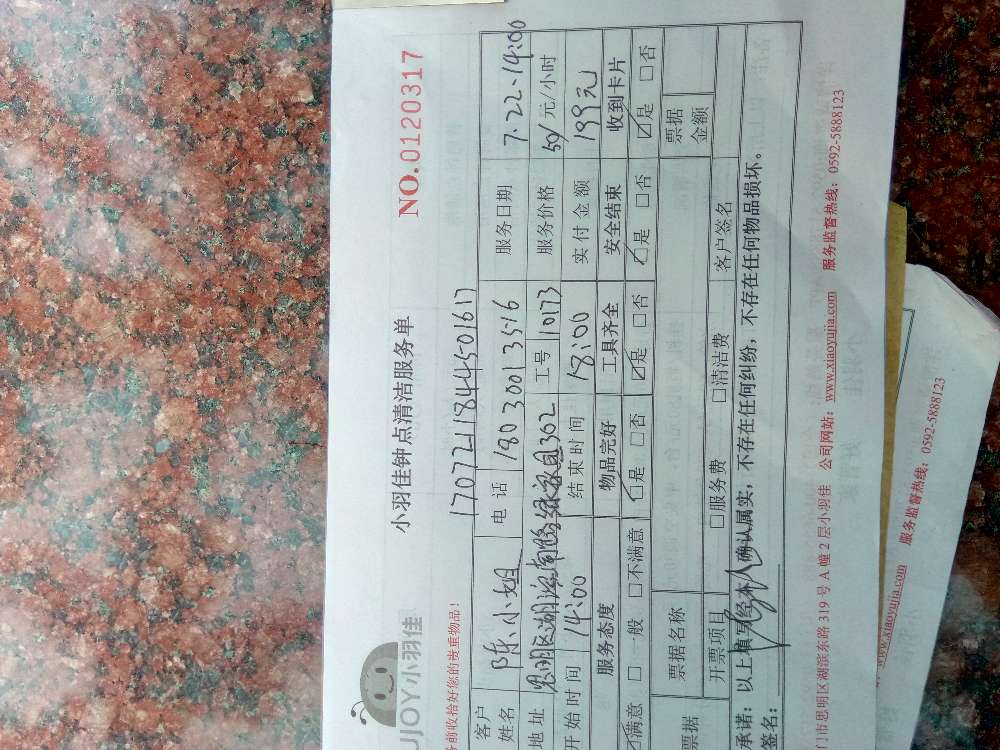 小羽佳钟点清洁服务单
NO.0120317
UJOY小羽佳
务前收拾好您的贵重物品!
1707221844501617
客户姓名 陈小姐 电话 18030013516 服务日期 7.22-14:00
地址 思明区湖滨南路绿家园302 工号 10173 服务价格 50/元/小时
开始时间 14:00 结束时间 18:00 实付金额 199元
服务态度 物品完好 工具齐全 安全结束 收到卡片
☑满意 □一般 □不满意 ☑是 □否 ☑是 □否 ☑是 □否 ☑是 □否
票据 票据名称 票据金额
开票项目 □服务费 □清洁费 客户签名
承诺:以上填写经本人确认属实,不存在任何纠纷,不存在任何物品损坏。
签名:
门市思明区湖滨东路 319 号 A 幢 2 层小羽佳 公司网站:www.xiaoyujia.com 服务监督热线:0592-5888123
www.xiaoyujia.com 服务监督热线:0592-5888123